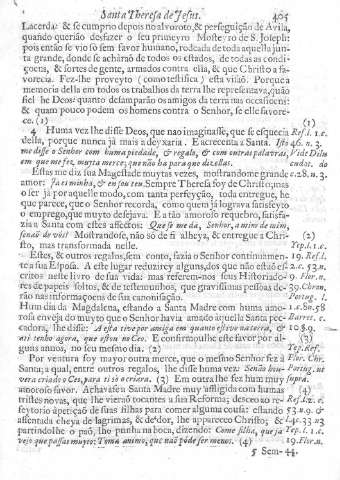 Santa Theresa de Jesus. 405
Lacerda: & se cumprio depois no alvoroto, & perseguição de Avila,
quando querião desfazer o seu primeyro Mosteyro de S. Joseph:
pois então se vio só sem favor humano, rodeada de toda aquella jun-
ta grande, donde se achàrão de todos os estados, de todas as condi-
çoens, & sortes de gente, armados contra ella, & que Christo a fa-
vorecia. Fez-lhe proveyto (como testifica) esta visão. Porque a
memoria della em todos os trabalhos da terra lhe representava, quão
fiel he Deos: quanto desamparão os amigos da terra nas occasioens:
& quam pouco podem os homens contra o Senhor, se elle favore-
ce. (1) (1)
4 Huma vez lhe disse Deos, que nao imaginasse, que se esquecia Ref. l. 1. c.
della, porque nunca já mais a deyxaria. Eaccrecenta a Santa. Isto 46. n. 3.
me disse o Senhor com huma piedade, & regalo, & com outras palavras, Vide Dilu
em que me fez, muyta merce, que não ha para que dizellas. cudat. do
Estas me diz sua Magestade muytas vezes, mostrandome grande c. 28. n. 3.
amor: Ja es minha, & eu sou teu. Sempre Theresa foy de Christo; mas
o ser já por aquelle modo, com tanta perfeyção, toda entregue, he
que parece, que o Senhor recorda, como quem já lograva satisfeyto
o emprego, que muyto desejava. E a tão amoroso requebro, satisfa-
zia a Santa com estes affectos: Que se me da, Senhor, a mim de mim,
senaõ de vòs? Mostrandose, não só de si alheya, & entregue a Chri- (2)
sto, mas transformada nelle. Yep. l. 1. c.
Estes, & outros regalos, sem conto, fazia o Senhor continuamen- 19. Ref. l.
te a sua Esposa. A este lugar reduzirey alguns, dos que não estão es- 2. c. 53. n.
critos neste livro de sua vida: mas referem-nos seus Historiado- 9. Flor. n.
res de papeis soltos, & de testemunhos, que gravissimas pessoas de- 39. Chron.
rão nas informaçoens de sua canonisação. Portug. l.
Hum dia da Magdalena, estando a Santa Madre com huma amo- 1. c. 80. 58
rosa enveja do muyto que o Senhor havia amado àquella Santa pec- Barret. c.
cadora, lhe disse: A esta tive por amiga em quanto estive na terra, & 10. §.9.
ati tenho agora, que estou no Ceo. E confirmoulhe este favor por al- (3)
guns annos, no seu mesmo dia. (2) Yep. Ref.
Por ventura foy mayor outra merce, que o mesmo Senhor fez à Flor. Chr.
Santa; a qual, entre outros regalos, lhe disse huma vez: Senão hou- Portug. ut
vera criado o Ceo, para ti só o criara. (3) Em outra lhe fez hum muy supra.
amoroso favor. Achavase a Santa Madre muy affligida com humas (4)
tristes novas, que lhe vieraõ tocantes a sua Reforma; desceo ao re- Ref. l. 2. c.
feytorio à petição de suas filhas para comer alguma cousa: estando 53. n. 9. &
assentada cheya de lagrimas, & de dor, lhe appareceo Christo; & L4. 33. n 3
partindolhe o paõ, lho punha na boca, dizendo: Come filha, que já Yep. l. 1. c.
vejo que passas muyto: Toma animo, que naõ póde ser menos. (4) 19. Flor. n.
5 Sem- 44.